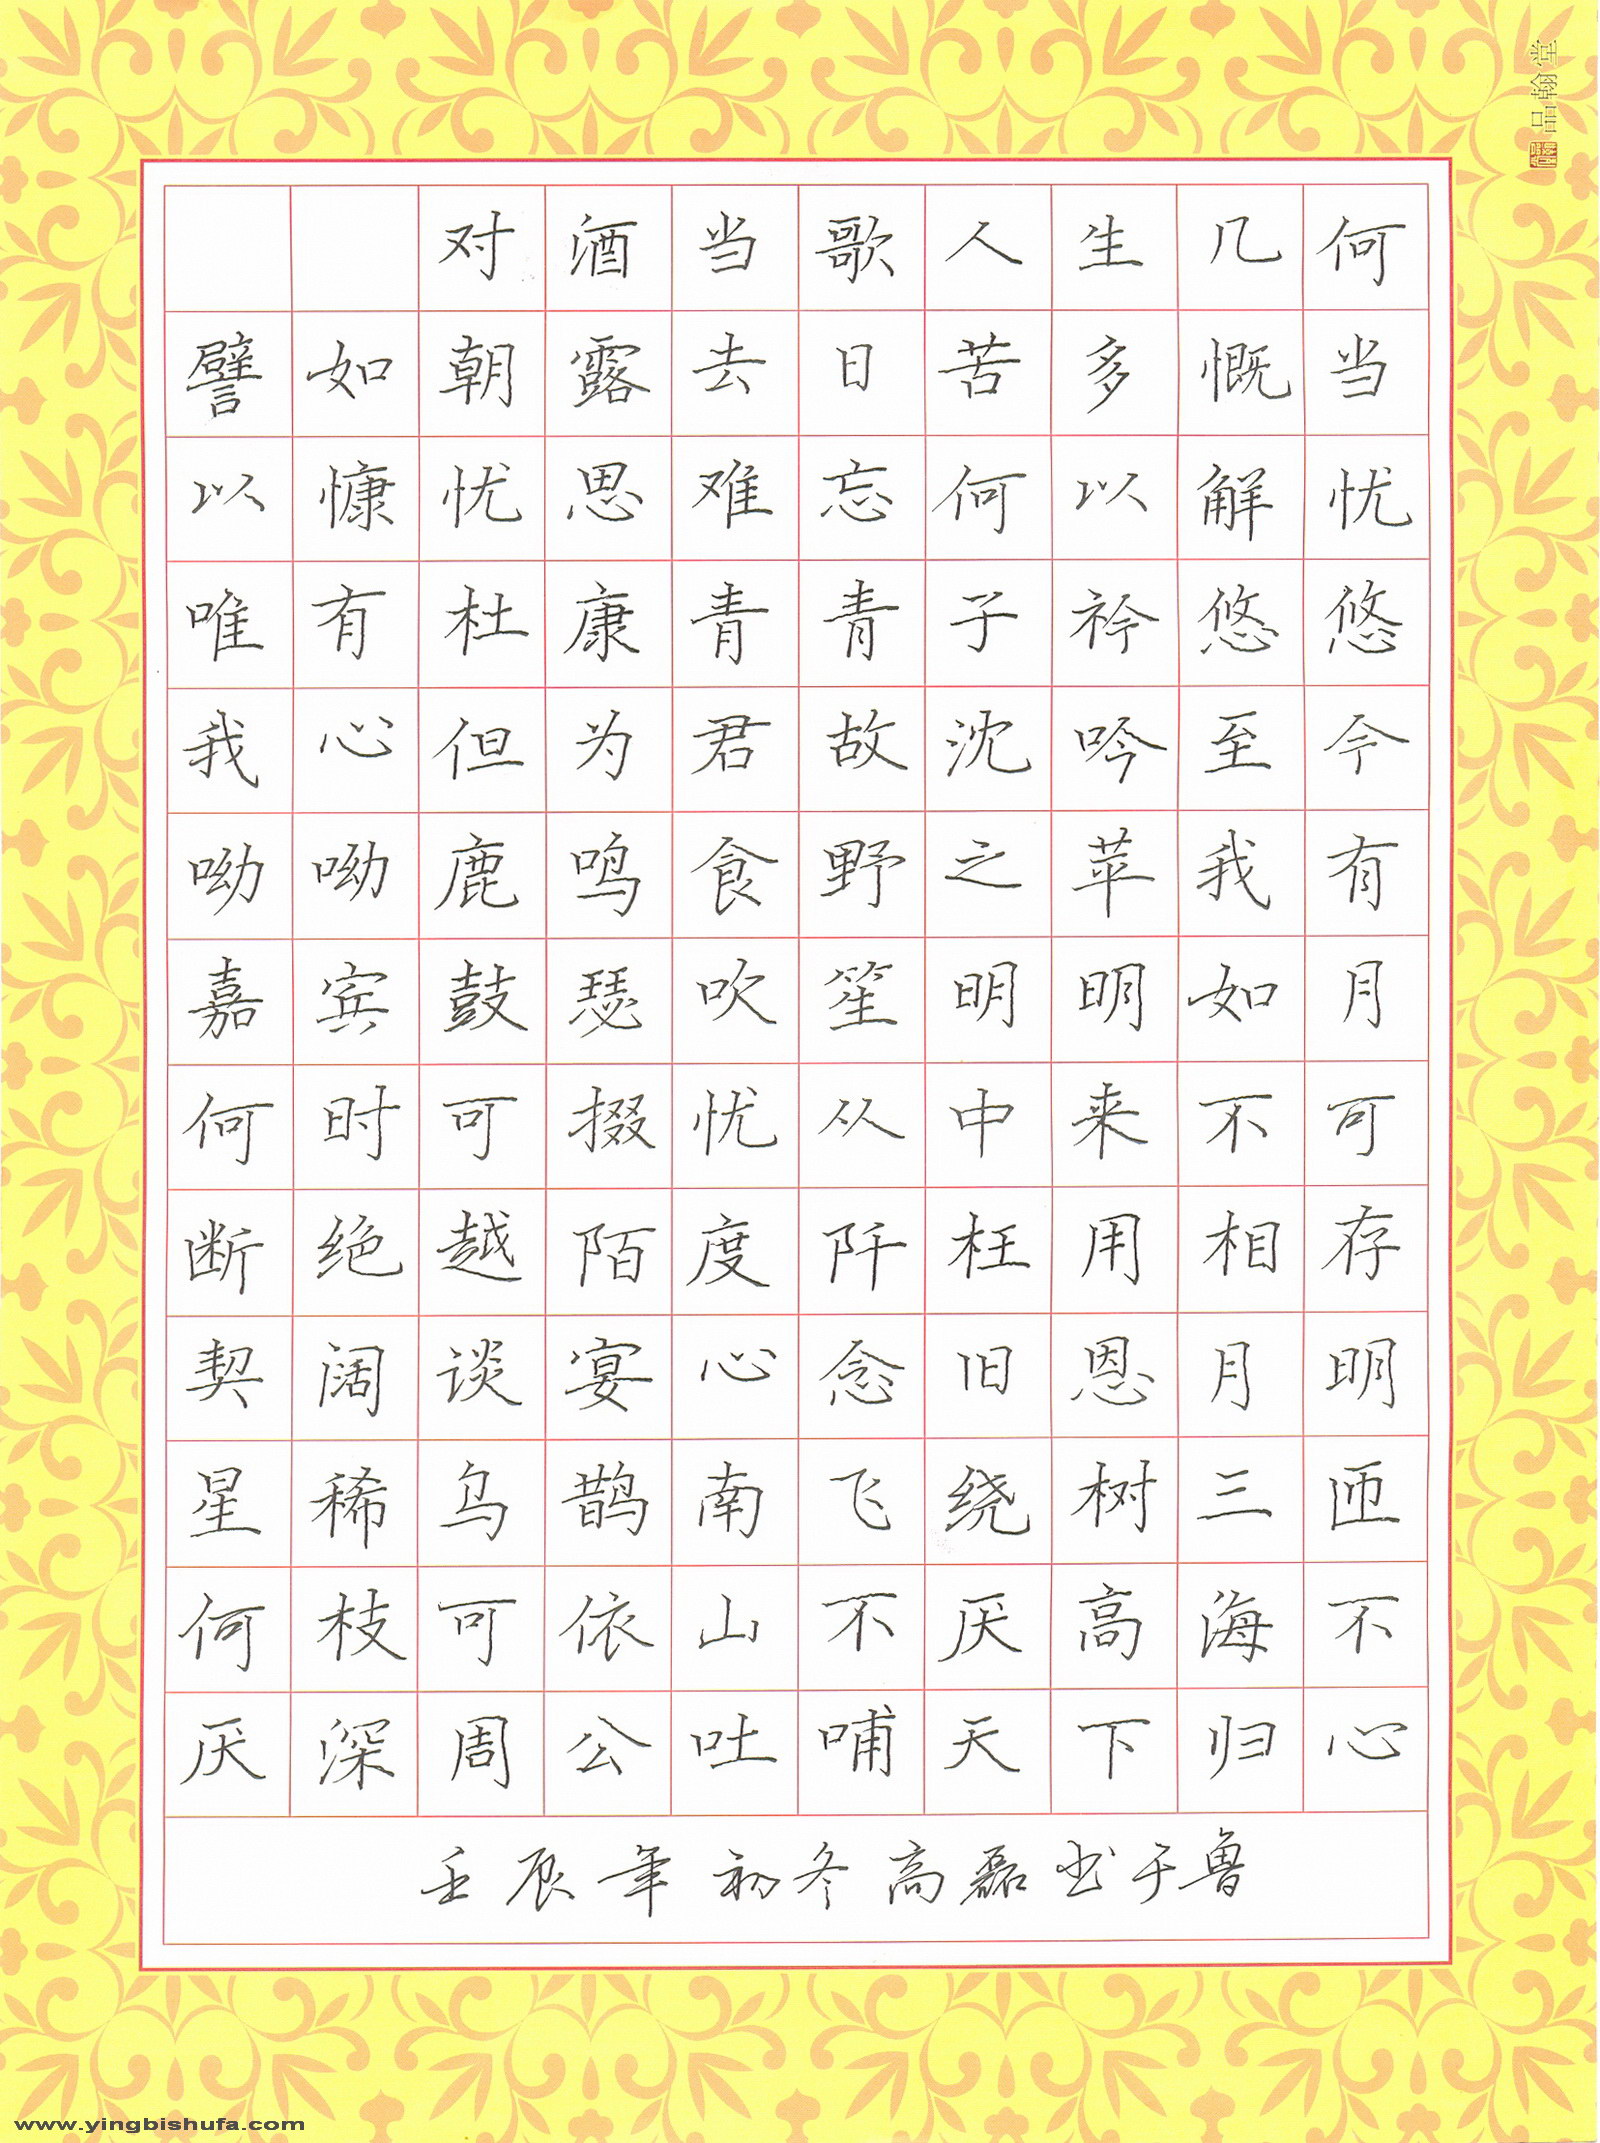 品翰堂
对酒当歌人生几何
譬如朝露去日苦多慨当
以慷忧思难忘何以解忧
唯有杜康青青子衿悠悠
我心但为君故沈吟至今
呦呦鹿鸣食野之苹我有
嘉宾鼓瑟吹笙明明如月
何时可掇忧从中来不可
断绝越陌度阡枉用相存
契阔谈宴心念旧恩月明
星稀乌鹊南飞绕树三匝
何枝可依山不厌高海不
厌深周公吐哺天下归心
壬辰年初冬高磊书于鲁
www.yingbishufa.com